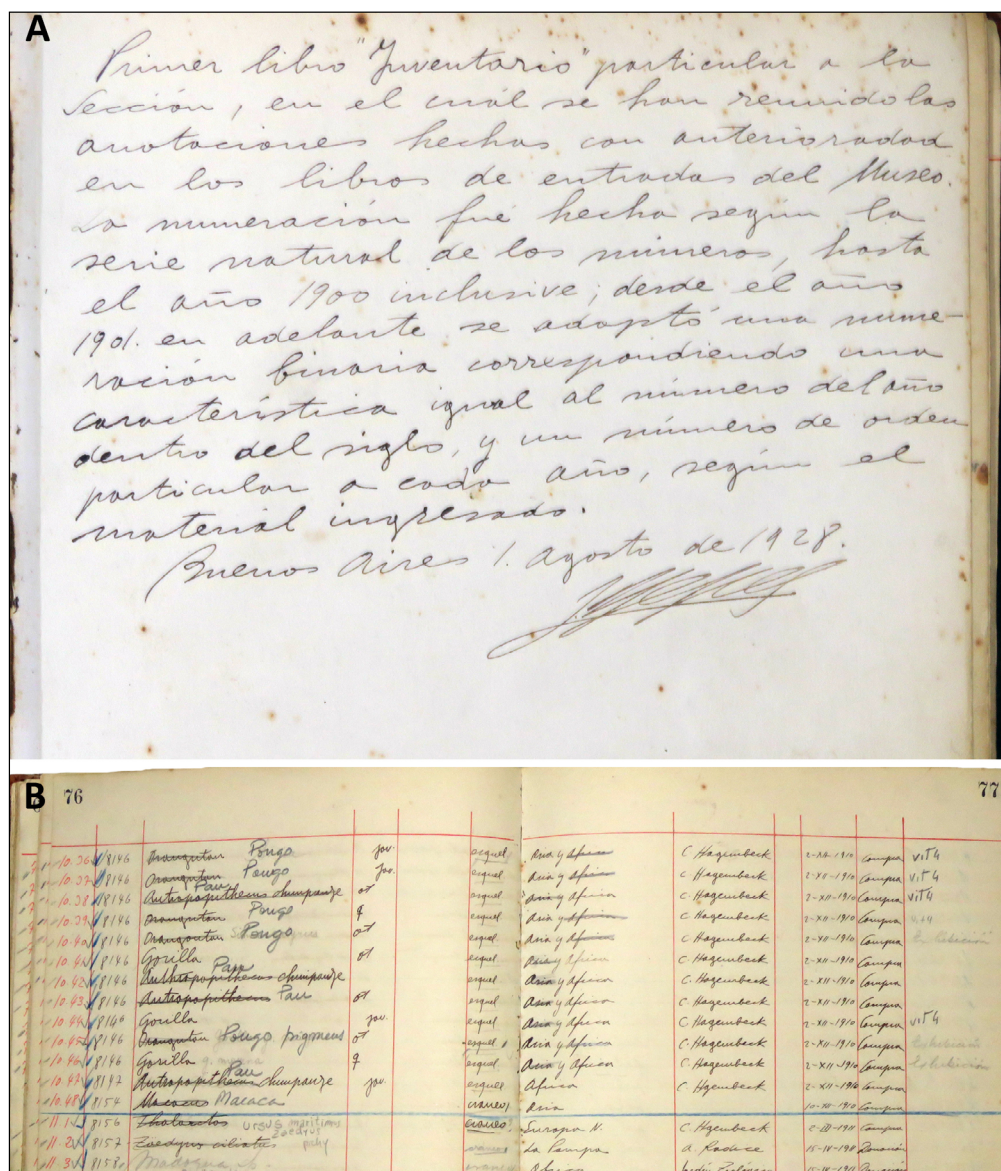 A
Primer libro "Inventario" particular a la
Sección, en el cuál se han reunido las
anotaciones hechas con anterioradad
en los libros de entradas del Museo.
La numeración fué hecha según la
serie natural de los números, hasta
el año 1900 inclusive; desde el año
1901. en adelante se adoptó una nume-
ración binaria correspondiendo una
característica igual al número del año
dentro del siglo, y un número de orden
particular a cada año, según el
material ingresado.
Buenos Aires 1. Agosto de 1928.
B 76 77
10.36 8146 Orangutan Pongo jov. esquel. Asia y Africa C. Hagembeck 2-XII-1910 Compra VIT4
10.37 8146 Orangutan Pongo jov. esquel Asia y Africa C. Hagembeck 2-XII-1910 Compra VIT4
10.38 8146 Antropopithecus Pan chimpanze ♂ esquel Asia y Africa C. Hagembeck 2-XII-1910 Compra VIT4
10.39 8146 Orangutan Pongo ♀ esquel Asia y Africa C. Hagembeck 2-XII-1910 Compra
10.40 8146 Orangoutan Pongo ♂ esquel Asia y Africa C. Hagembeck 2-XII-1910 Compra
10.41 8146 Gorilla ♂ esquel Asia y Africa C. Hagembeck 2-XII-1910 Compra
10.42 8146 Anthropopithecus Pan chimpanze esquel Asia y Africa C. Hagembeck 2-XII-1910 Compra
10.43 8146 Antropopithecus Pan ♂ esquel Asia y Africa C. Hagembeck 2-XII-1910 Compra
10.44 8146 Gorilla jov. esquel Asia y Africa C. Hagembeck 2-XII-1910 Compra VIT4
10.45 8146 Orangutan Pongo pigmeus ♂ esquel Asia y Africa C. Hagembeck 2-XII-1910 Compra
10.46 8146 Gorilla ♀ esquel Asia y Africa C. Hagembeck 2-XII-1910 Compra
10.47 8147 Antropopithecus Pan chimpanze jov. esquel Africa C. Hagembeck 2-XII-1910 Compra
10.48 8154 Macacus Macaca craneo Asia Compra
11.1 8156 Thalarctos Ursus maritimus craneo Europa N. C. Hagembeck Compra
11.2 8157 Zaedyus ciliatus Zaedyus pichy La Pampa A. Radice Donación
11.3 8158